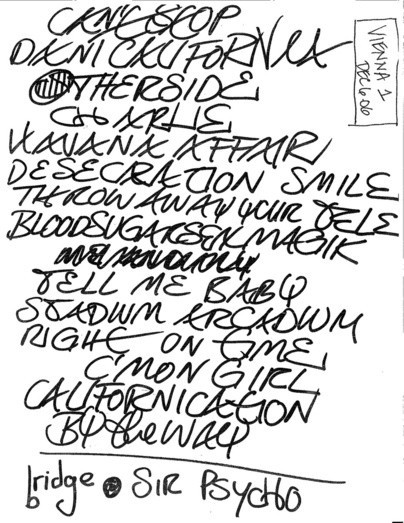 CAN'T STOP
DANI CALIFORNIA
OTHERSIDE
CHARLIE
HAVANA AFFAIR
DESECRATION SMILE
THROW AWAY YOUR TELE
BLOODSUGARSEXMAGIK
TELL ME BABY
STADIUM ARCADIUM
RIGHT ON TIME
C'MON GIRL
CALIFORNICATION
BY the WAY
bridge SIR PSYCHO
VIENNA 1
DEC 6 06